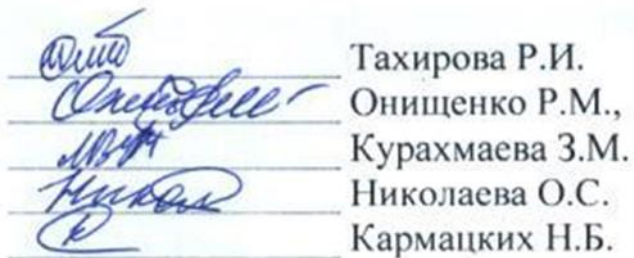 Тахирова Р.И.
Онищенко Р.М.,
Курахмаева З.М.
Николаева О.С.
Кармацких Н.Б.